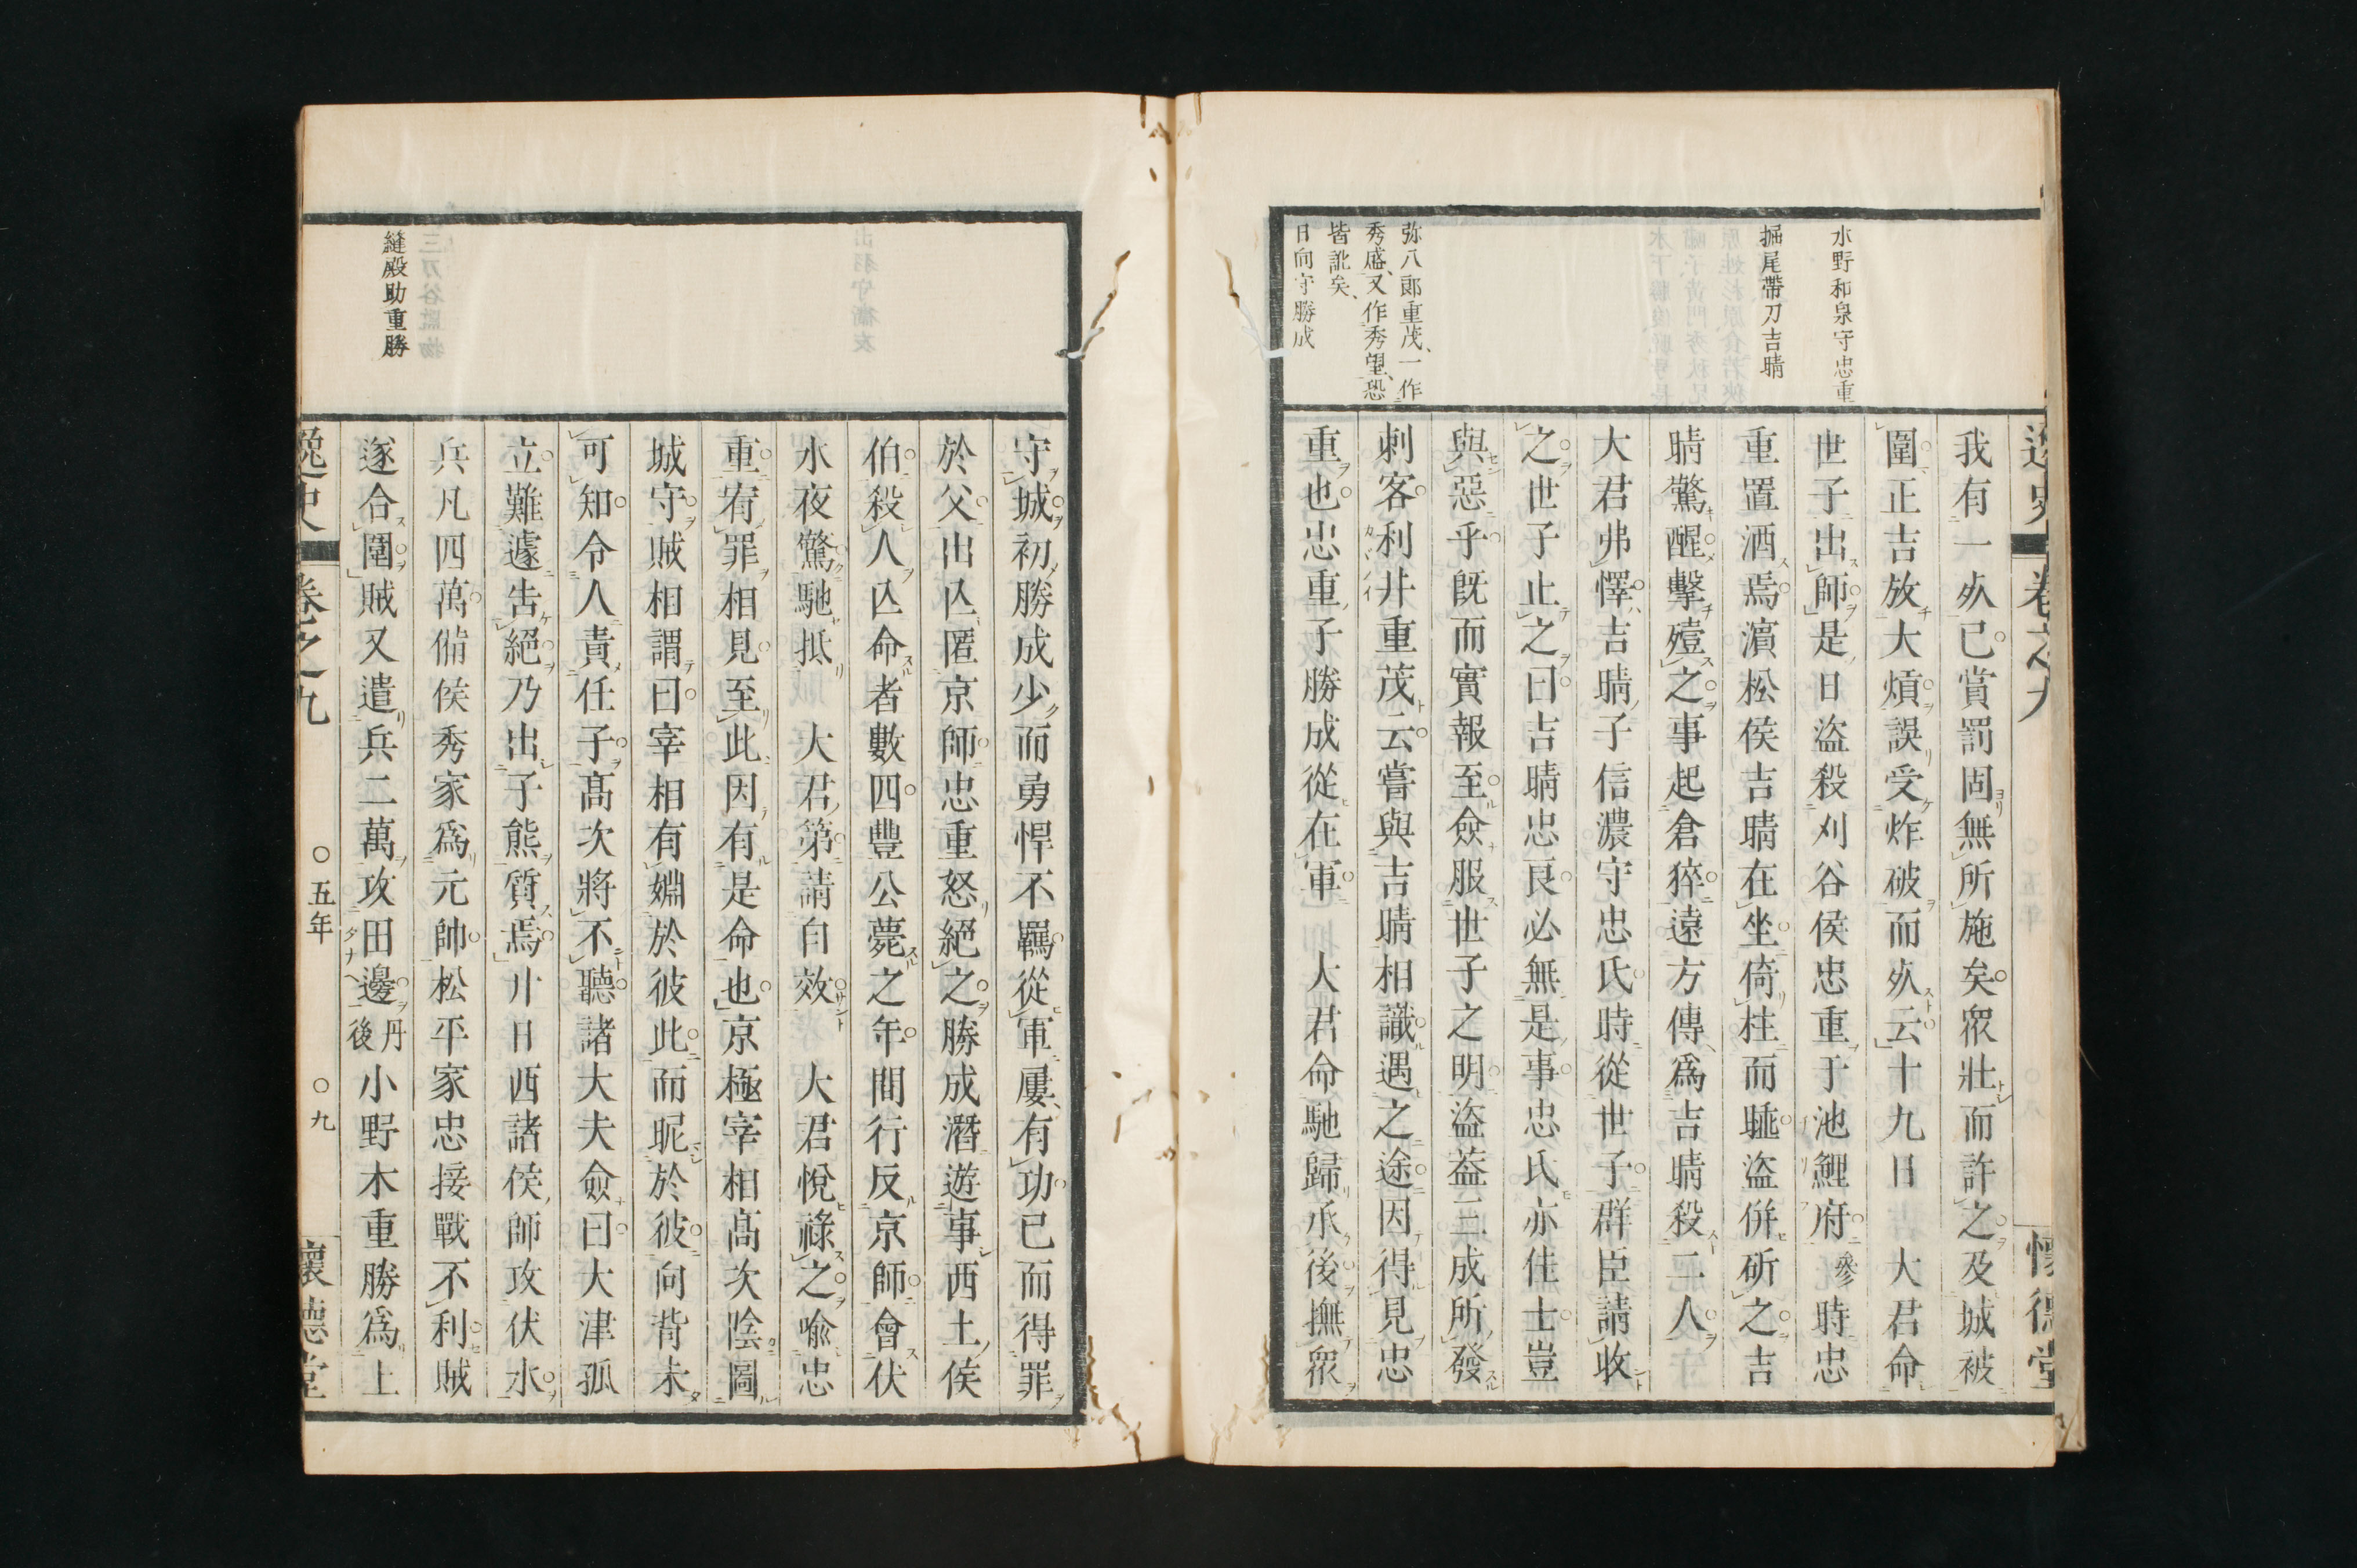 水野和泉守忠重
掘尾帶刀吉晴
弥八郎重茂、一作
秀盛、又作秀望、恐
皆訛矣、
日向守勝成
逸史
卷之九
懷德堂
我有一死已賞罰固無所施矣衆壯而許之及城被
圍正吉放大熕誤受炸破而死云十九日　大君命
世子出師是日盜殺刈谷侯忠重于池鯉府參時忠
重置酒焉濵松侯吉晴在坐倚柱而睡盜併斫之吉
晴驚醒擊殪之事起倉猝遠方傳爲吉晴殺二人
大君弗懌吉晴子信濃守忠氏時從世子群臣請收
之世子止之曰吉晴忠良必無是事忠氏亦佳士豈
與惡乎既而實報至僉服世子之明盜葢三成所發
刺客利井重茂云嘗與吉晴相識遇之途因得見忠
重也忠重子勝成從在軍　大君命馳歸承後撫衆
守城初勝成少而勇悍不羈從軍屢有功已而得罪
於父出亾匿京師忠重怒絕之勝成潛遊事西土侯
伯殺人亾命者數四豐公薨之年間行反京師會伏
水夜驚馳抵　大君第請自效　大君悅祿之喩忠
重宥罪相見至此因有是命也京極宰相高次陰圖
城守賊相謂曰宰相有婣於彼此而昵於彼向背未
可知令人責任子高次將不聽諸大夫僉曰大津孤
立難遽告絕乃出子熊質焉廾日西諸侯師攻伏水
兵凡四萬備侯秀家爲元帥松平家忠接戰不利賊
遂合圍賊又遣兵二萬攻田邊丹後小野木重勝爲上
縫殿助重勝
逸史
卷之九
○五年
○九
懷德堂